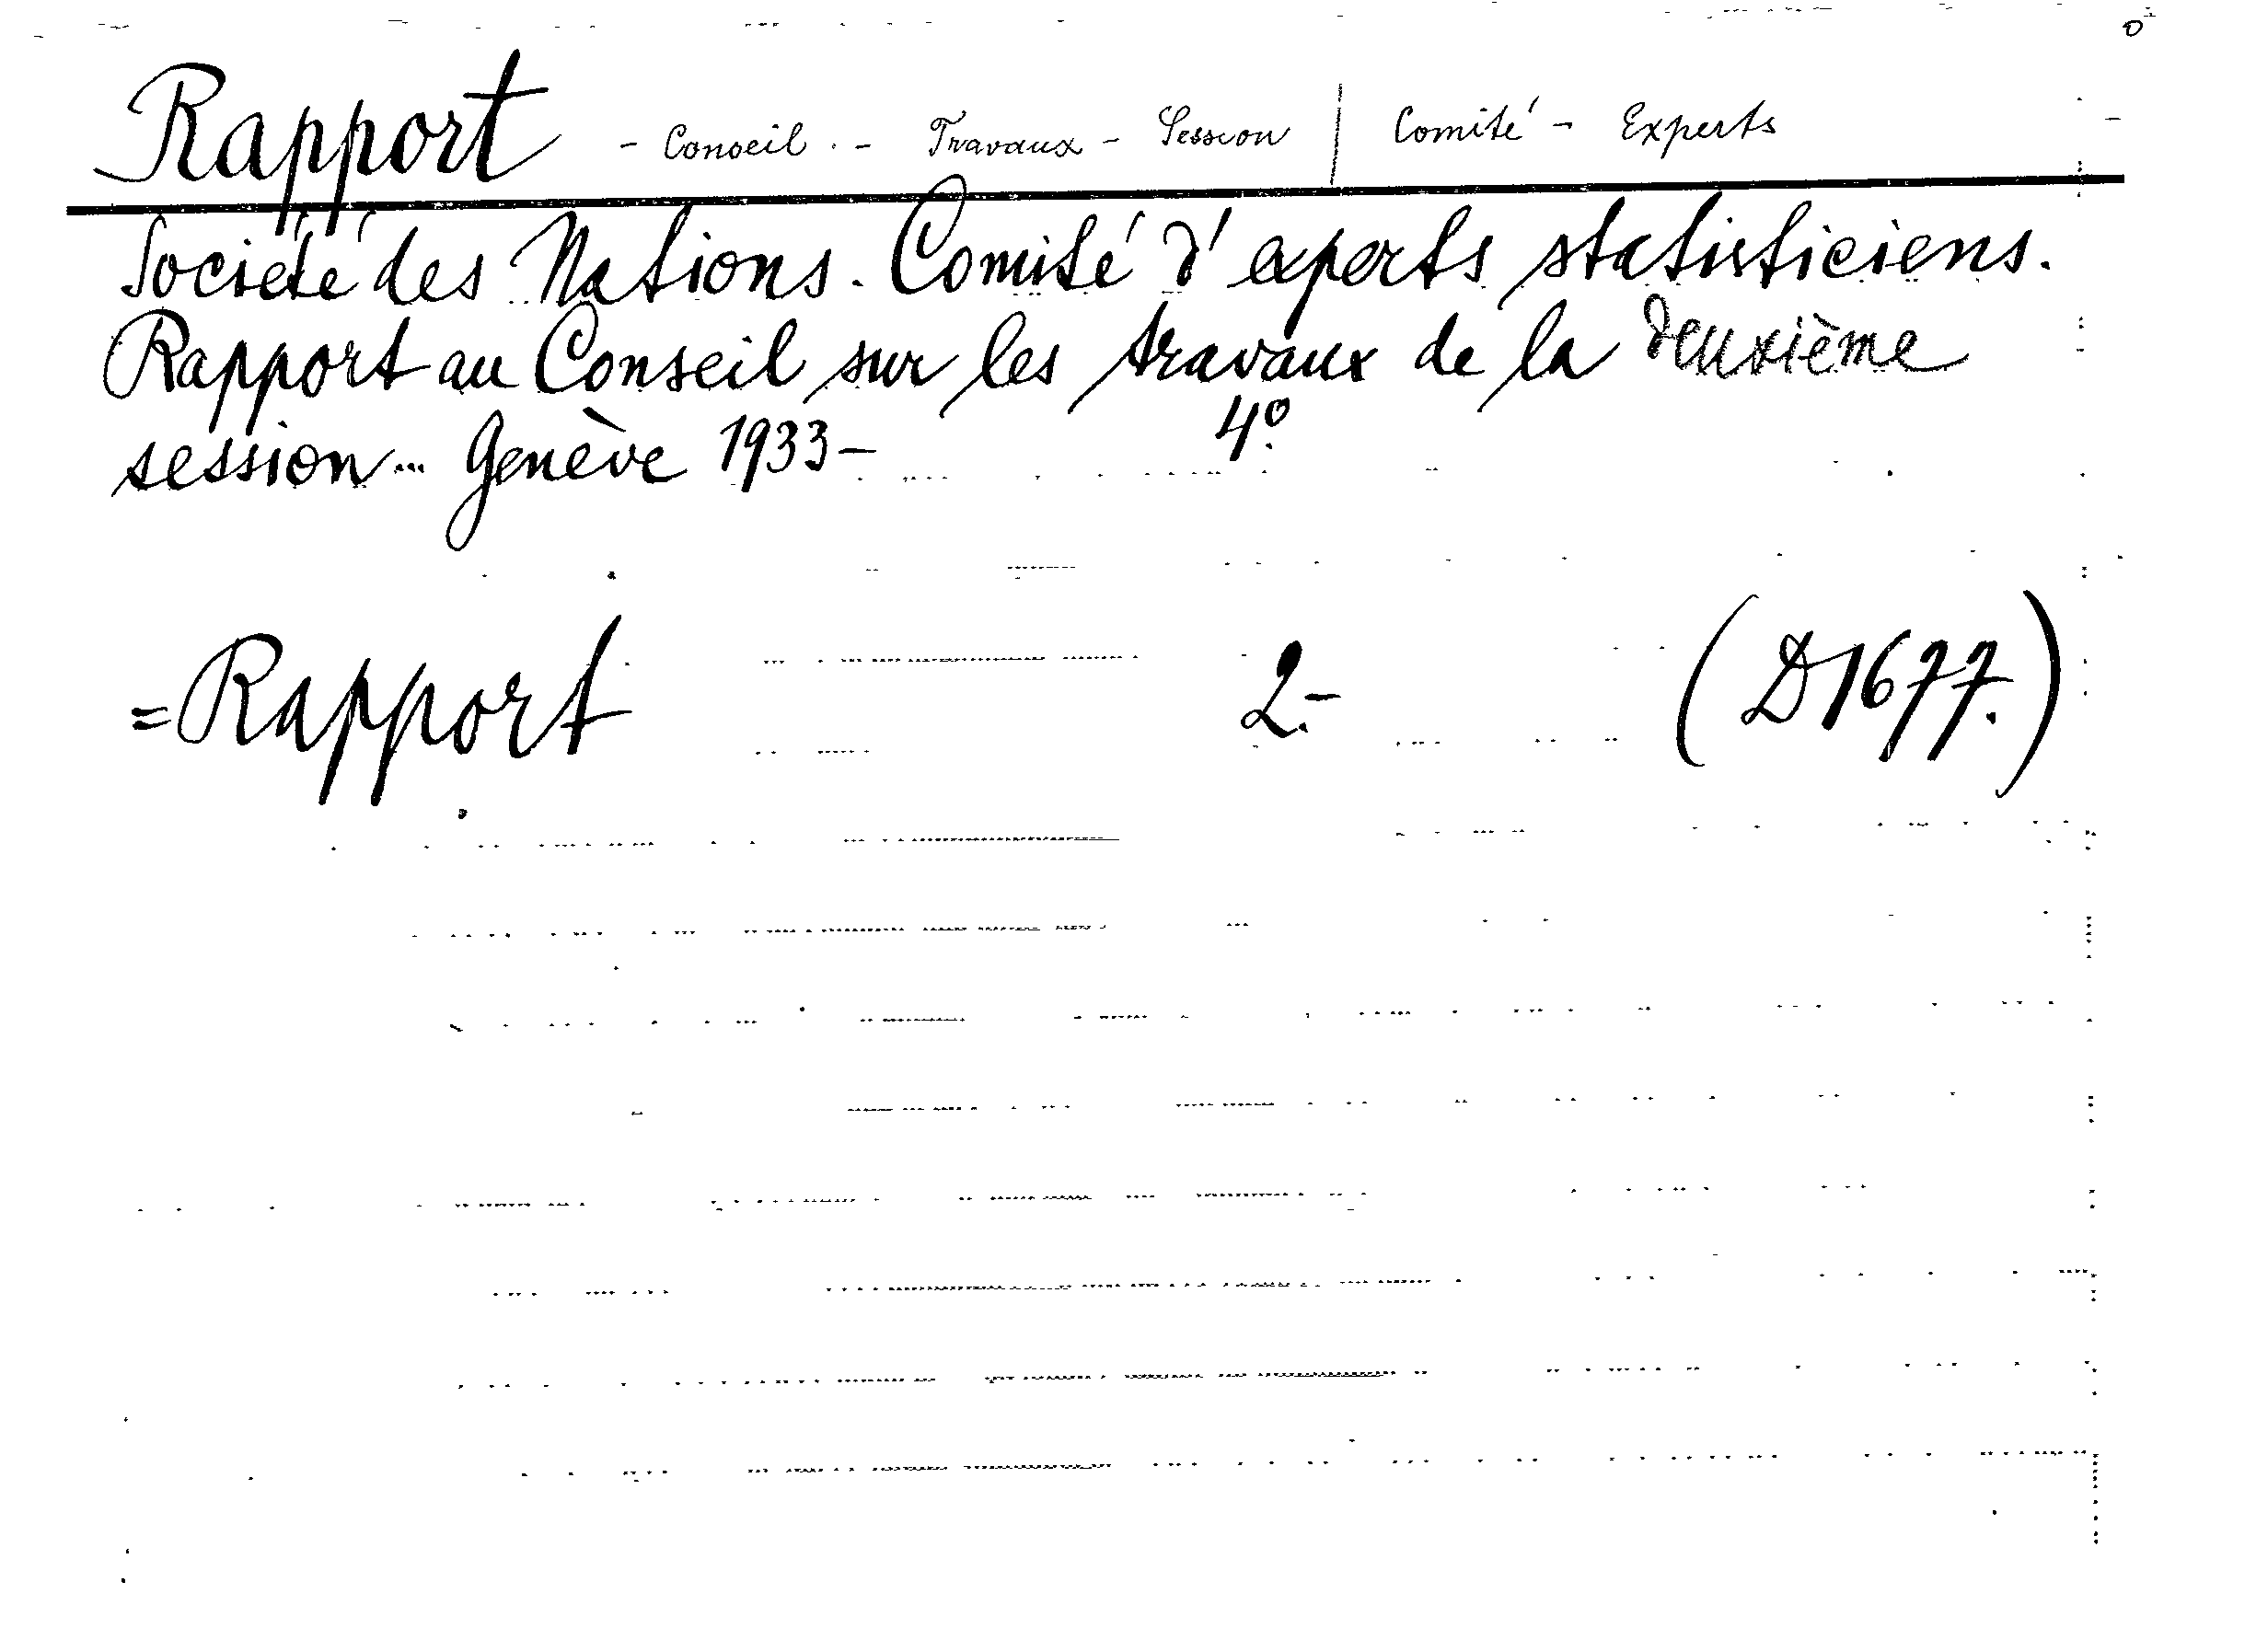 Rapport - Conseil - Travaux - Session | Comité - Experts
Société des Nations. Comité d'experts statisticiens.
Rapport au Conseil sur les travaux de la deuxième
session... Genève 1933 - 4º.
=Rapport 2.- (D1677.)